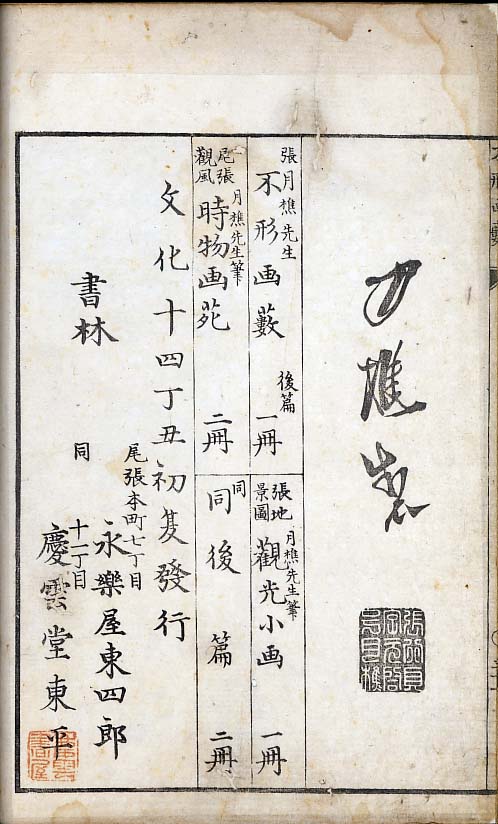 月樵製
張月樵先生
不形画藪 後篇 一冊
張地景圖 月樵先生筆
觀光小画 一冊
尾張觀風 月樵先生筆
時物画苑 二冊
同 同後篇 二冊
文化十四丁丑初夏發行
尾張本町七丁目
書林 永樂屋東四郎
同 十一丁目
慶雲堂東平